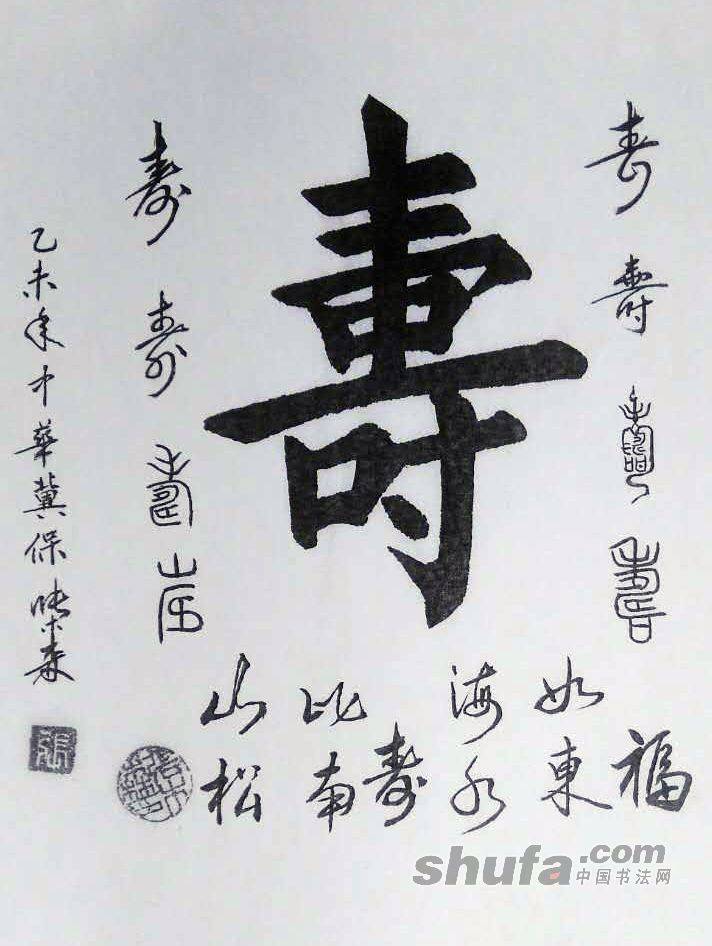 壽
寿
壽
壽
壽
福
如東
海水
壽
比南
山松
寿
寿
壽
乙未年中華冀保
張
shufa.com
中国书法网